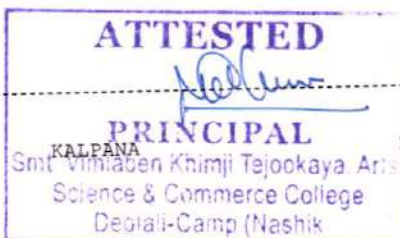 ATTESTED
PRINCIPAL
KALPANA
Smt. Vimlaben Khimji Tejookaya Arts
Science & Commerce College
Deolali-Camp (Nashik